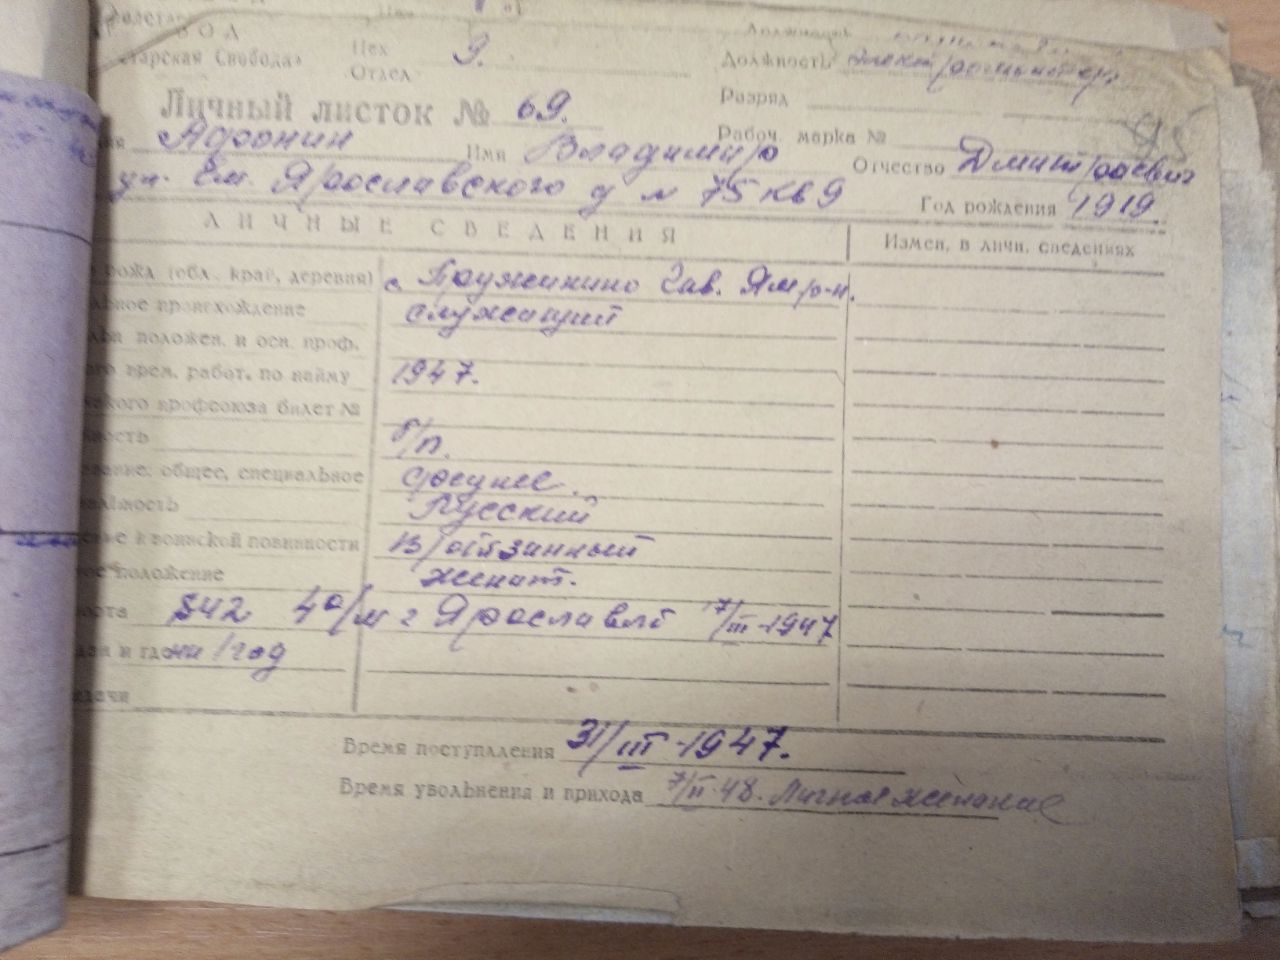 ВОД
тарская Свобода» Цех 9. Должность электромонтер
Отдел
Разряд
Личный листок № 69.
Рабоч. марка № 95
Афонин Имя Владимир Отчество Дмитриевич
ул. Ем. Ярославского д № 75 кв 9 Год рождения 1919.
ЛИЧНЫЕ СВЕДЕНИЯ Измен. в личн. сведениях
рожд (обл., край, деревня) с. Пружинино Гав. Ям р-н.
ное происхождение служащий
положен. и осн. проф.
врем. работ. по найму 1947.
кого профсоюза билет №
ность б/п.
ование: общее, специальное среднее.
альность Русский
ие к воинской повинности в/обязанный
ое положение женат.
орта 542 4 о/м г Ярославля 17/III-1947
дан и где на 1 год
дачи
Время поступления 31/III-1947.
Время увольнения и прихода 7/II-48. Личное желание